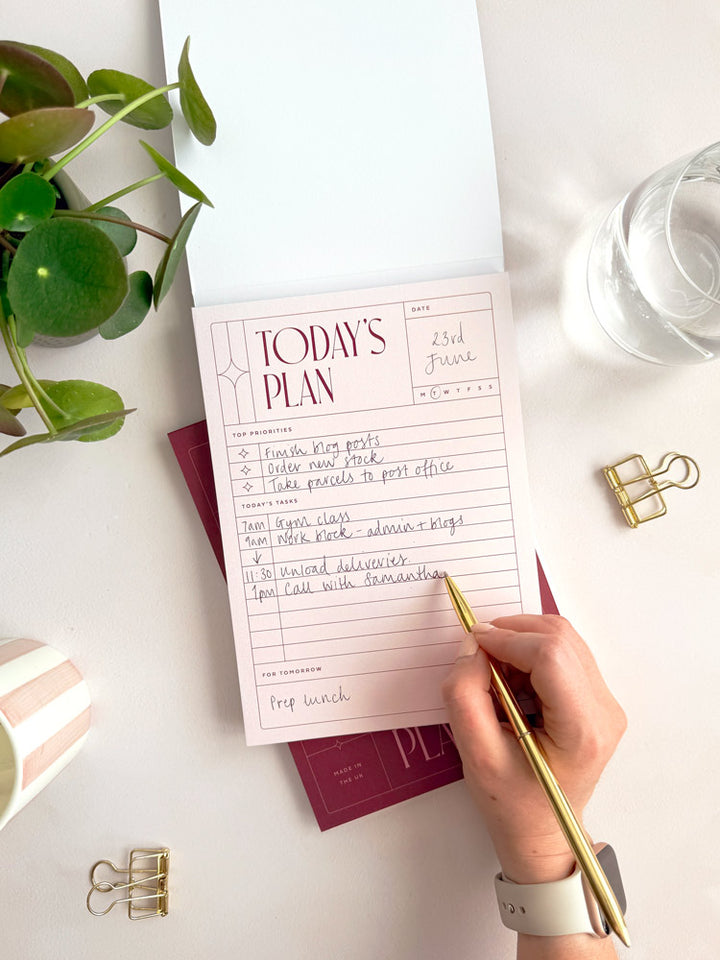 TODAY'S
PLAN
DATE
23rd
June
M T W T F S S
TOP PRIORITIES
Finish blog posts
Order new stock
Take parcels to post office
TODAY'S TASKS
7am Gym class
9am Work block - admin + blogs
↓
11:30 Unload deliveries.
1pm Call with Samantha
FOR TOMORROW
Prep lunch
PLA
MADE IN
THE UK